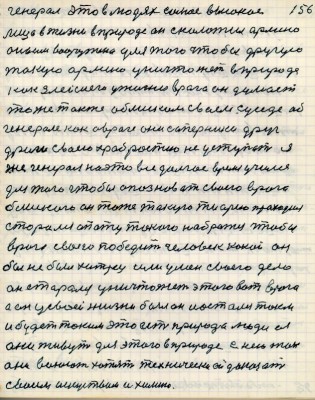 генерал это в людях самое высокое 156
лицо в жизни в природе он сложили армию
он был вооружено для того чтобы другую
такую армию уничтожет в природе
как злейшего у жизни врага он думает
тоже также об таком своем соседе об
генерале как о враге они соперники друг
другу своею храбростию не уступят я
же генерал на это все долгое время учился
для того чтобы опознать своего врага
близкого он тоже такую теорию проходил
старался опоту такого набрать чтобы
врага своего победит человек какой он
бы не был хитрец или умен своего дела
он старался уничтожет этого вот врага
а он у своей жизни был он и остался таким
и будет таким это есть природа люди а
они живут для этого в природе с нею так
они воюют хотят технической доказать
своим искуством и химию.